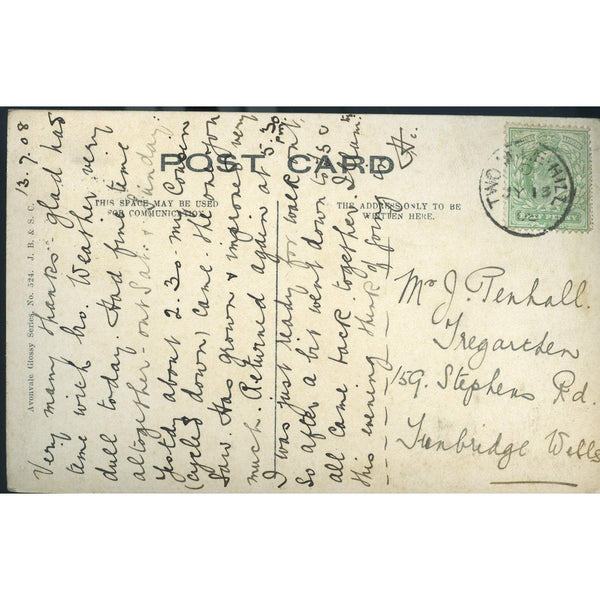 POST CARD
THIS SPACE MAY BE USED
FOR COMMUNICATION.
THE ADDRESS ONLY TO BE
WRITTEN HERE.
Avonvale Glossy Series, No. 524. J. B. & S. C.
TWO MILE HILL
13.7.08
Very many thanks. glad had
time with bro. Weather very
dull today. Had fine time
altogether - out Sat. & Sunday.
Ystdy about 2.30 my Cousin
(cycled down) came the one you
saw. Has grown & improved very
much. Returned again at 5.30 pm.
I was just ready for walk out,
so after a bit went down to
all came back together. I am
this evening think of you
H.
Mr J. Penhall.
Tregarthen
159. Stephens Rd.
Tunbridge Wells